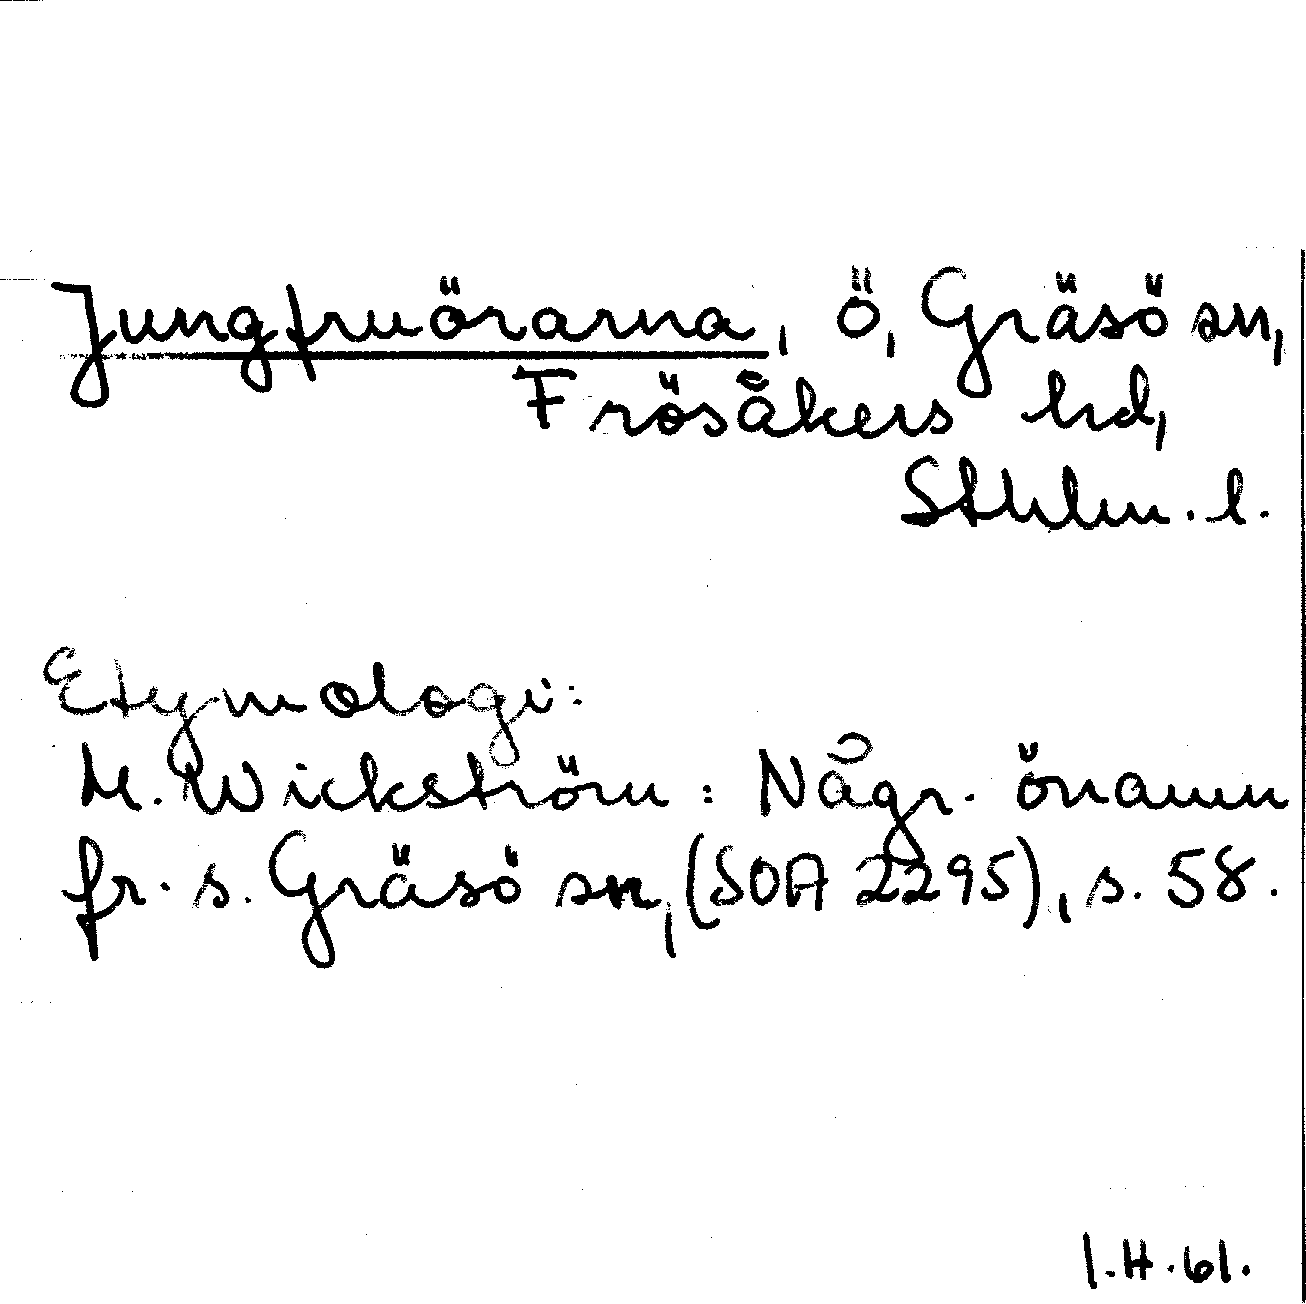 Jungfruörarna, ö, Gräsö sn,
Frösåkers hd,
Sthlm. l.
Etymologi:
M. Wickström: Någr. önamn
fr. s. Gräsö sn, (SOA 2295), s. 58.
I.H.61.